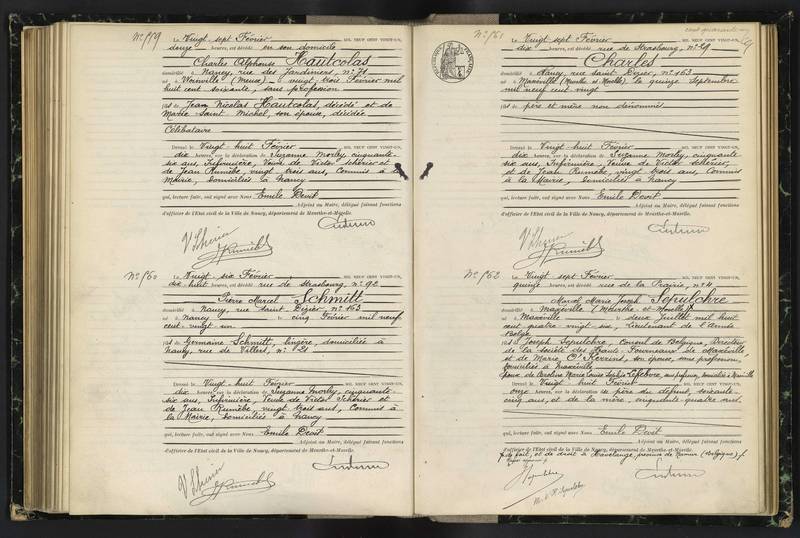 N° 559
Le Vingt sept Février MIL NEUF CENT VINGT-UN,
douze heures, est décédé en son domicile
Charles Alphonse Hautcolas
domicilié à Nancy, rue des Jardiniers, n° 71
né à Woinville (Meuse) le vingt trois Février mil
huit cent soixante, sans profession
fils de Jean Nicolas Hautcolas, décédé et de
Marie Saint Michel, son épouse, décédée
Célibataire
Dressé le Vingt huit Février MIL NEUF CENT VINGT-UN,
dix heures, sur la déclaration de Suzanne Morley, cinquante
six ans, Infirmière, Veuve de Victor Schérier et
de Jean Rumèbe, vingt trois ans, Commis à la
Mairie, domiciliés à Nancy
qui, lecture faite, ont signé avec Nous Emile Devit
Adjoint au Maire, délégué faisant fonctions
d'officier de l'Etat civil de la Ville de Nancy, département de Meurthe-et-Moselle.
N° 560
Le Vingt six Février MIL NEUF CENT VINGT-UN,
dix huit heures, est décédé rue de Strasbourg, n° 92
Pierre Marcel Schmitt
domicilié à Nancy, rue Saint Dizier, n° 163
né à Nancy le cinq Février mil neuf
cent vingt un
fils de Germaine Schmitt, lingère, domiciliée à
Nancy, rue de Villers, n° 21
Dressé le Vingt huit Février MIL NEUF CENT VINGT-UN,
dix heures, sur la déclaration de Suzanne Morley, cinquante
six ans, Infirmière, Veuve de Victor Schérier et
de Jean Rumèbe, vingt trois ans, Commis à
la Mairie, domiciliés à Nancy
qui, lecture faite, ont signé avec Nous Emile Devit
Adjoint au Maire, délégué faisant fonctions
d'officier de l'Etat civil de la Ville de Nancy, département de Meurthe-et-Moselle.
N° 561
Le Vingt sept Février MIL NEUF CENT VINGT-UN,
dix heures, est décédé rue de Strasbourg, n° 29
Charles
domicilié à Nancy, rue Saint Dizier, n° 163
né à Maxéville (Meurthe et Moselle) le quinze Septembre
mil neuf cent vingt
fils de père et mère non dénommés
Dressé le Vingt huit Février MIL NEUF CENT VINGT-UN,
dix heures, sur la déclaration de Suzanne Morley, cinquante
six ans, Infirmière, Veuve de Victor Schérier,
et de Jean Rumèbe, vingt trois ans, Commis
à la Mairie, domiciliés à Nancy
qui, lecture faite, ont signé avec Nous Emile Devit
Adjoint au Maire, délégué faisant fonctions
d'officier de l'Etat civil de la Ville de Nancy, département de Meurthe-et-Moselle.
N° 562
Le Vingt sept Février MIL NEUF CENT VINGT-UN,
quinze heures, est décédé rue de la Prairie, n° 4
Marcel Marie Joseph Sepulchre
domicilié à Maxéville (Meurthe-et-Moselle)
né à Maxéville le deux Juillet mil huit
cent quatre vingt six, Lieutenant de l'Armée
Belge
fils de Joseph Sepulchre, Consul de Belgique, Directeur
de la Société des Hauts Fourneaux de Maxéville,
et de Marie son épouse, sans profession,
domiciliés à Maxéville
Epoux de Caroline Marie Louise Sophie Lefebvre, sans profession, domiciliée à Maxéville
Dressé le Vingt huit Février MIL NEUF CENT VINGT-UN,
onze heures, sur la déclaration de père du défunt, soixante
cinq ans, et de la mère, cinquante quatre ans
qui, lecture faite, ont signé avec Nous Emile Devit
Adjoint au Maire, délégué faisant fonctions
d'officier de l'Etat civil de la Ville de Nancy, département de Meurthe-et-Moselle.
de fait, et de droit à Havelange, province de Namur (Belgique)